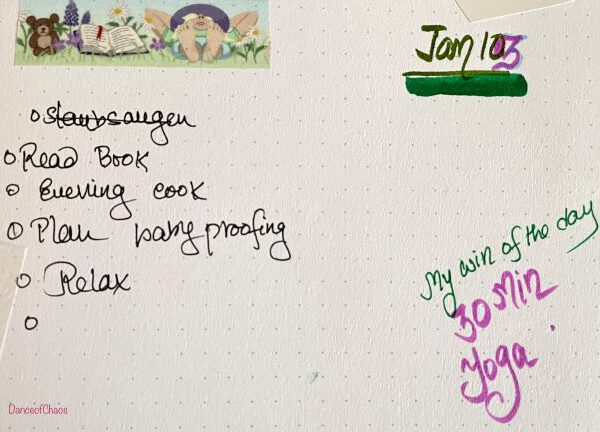 Jan 103
staubsaugen
Read Book
Evening cook
Plan baby proofing
Relax
My win of the day
30 Min
Yoga.
DanceofChaos